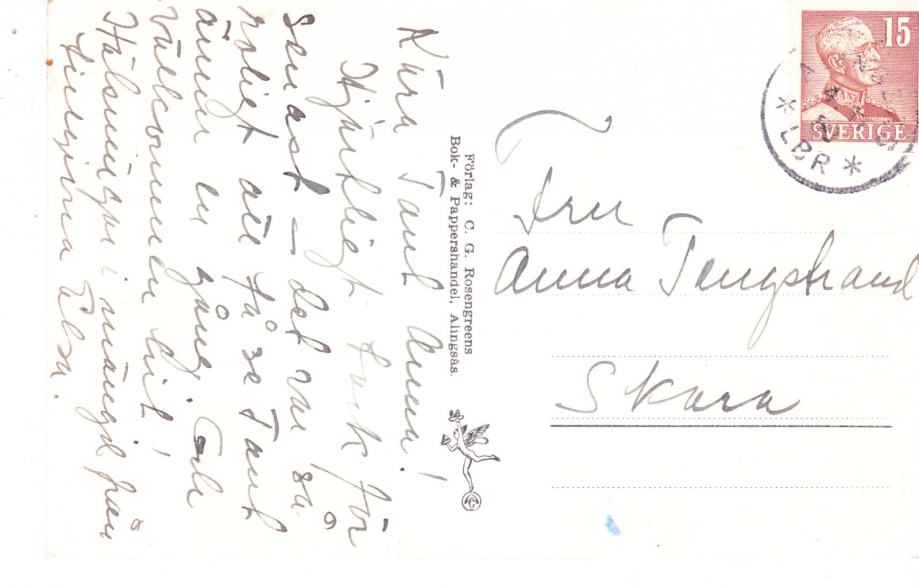 Kära Tant Anna!
Hjärtligt tack för
senast – det var så
roligt att få se Tant
ännu en gång. Och
välkommen dit!
Hälsningar i mängd från
Elsa.
Förlag: C. G. Rosengreens
Bok- & Pappershandel, Alingsås.
15
SVERIGE
LBR
Fru
Anna Tengstrand
Skara